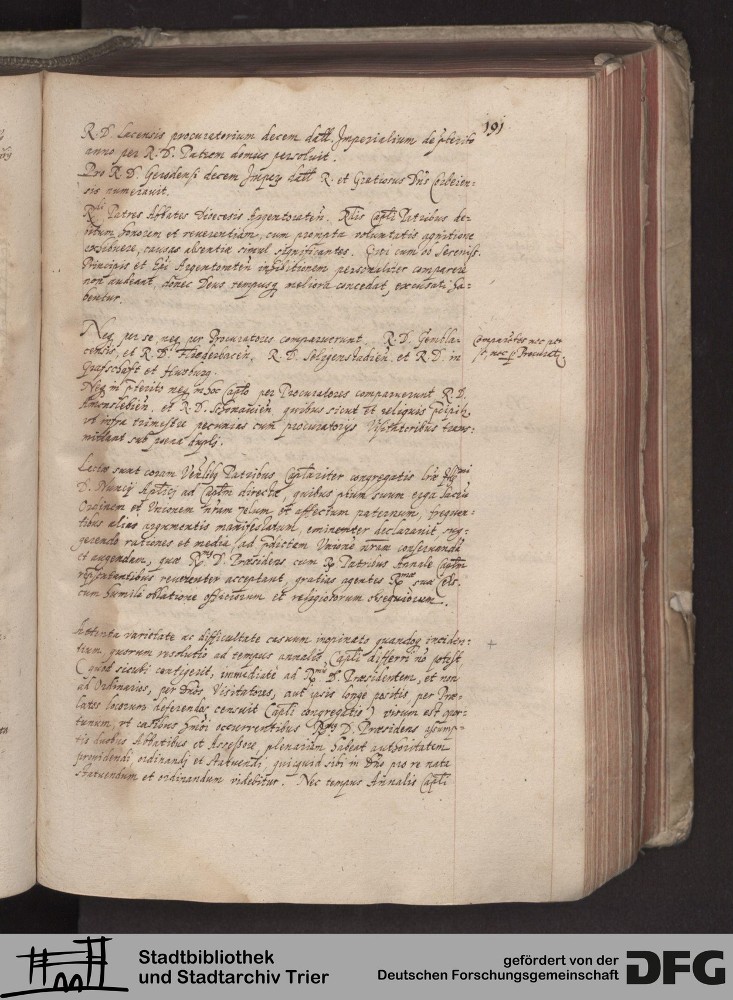 191
R. D. Lacensis procuratorium decem dall. Imperialium de pterito
anno per R. D. Patrem domus persoluit.
Pro R. D. Geredensi decem Imper dall R. et Gratiosus Dns Corbeien-
sis numerauit.
R.di Patres Abbates diocesis Argentoraten. Rlis Capli Patribus de-
bitum honorem et reuerentiam, cum promata voluntatis agnitione
exhibuere, causas absentiæ simul significantes. Cum ob Sereniss.
Principis et Epi Argentoraten inhibitionem personaliter comparere
non audeant, donec Deus tempusq meliora concedat, excusati ha-
bentur.
Neq per se, neq per Procuratores comparuerunt R. D. Gembla-
censis, et R. D. R. D. Seligenstadien. et R. D. in
Grafschaft et Husburg.
Comparentes nec per
se, nec p Procurat.
Neq in pterito neq in hoc Caplo per Procuratores comparuerunt R. D.
Amonslebien. et R. D. Schonauien, quibus sicut et reliquis
vt infra trimestre pecunias cum procuratorijs Visitatoribus trans-
mittant sub pœna dupli.
Lectæ sunt coram Venlibq Patribus Caplariter congregatis lræ
D. Nuncij Aplici ad Caplm directæ, quibus pium suum erga sacrum
Ordinem et Vnionem nram zelum et affectum paternum, frequen-
tibus alias argumentis manifestatum, eminenter declarauit, sug-
gerendo rationes et media ad pdictam Unione nram conseruandā
et augendam, quæ R.mus D. Præsidens cum RR Patribus Annale Caplm
repsentantibus reuerenter acceptant, gratias agentes R.mæ suæ Cels.
cum humili oblatione officiorum et religiosorum obsequiorum.
Attenta varietate ac difficultate casuum inopinato quandoq inciden-
tium, quorum resolutio ad tempus annalis Capli differri nō potest,
(quod sicubi contigerit, immediatè ad R.mum D. Præsidentem, et non
ad Ordinarios, per dnos Visitatores, aut ipsis longe positis per Præ-
latos locorum deferendos censuit Capli congregatio) visum est opor-
tunum, vt casibus hmoi occurrentibus R.mus D. Præsidens assump-
tis duobus Abbatibus et Assessore, plenariam habeat authoritatem
prouidendi ordinandj et statuendi quicquid sibi in Dno pro re nata
statuendum et ordinandum videbitur. Nec tempus Annalis Capli
+
Stadtbibliothek
und Stadtarchiv Trier
gefördert von der
Deutschen Forschungsgemeinschaft
DFG